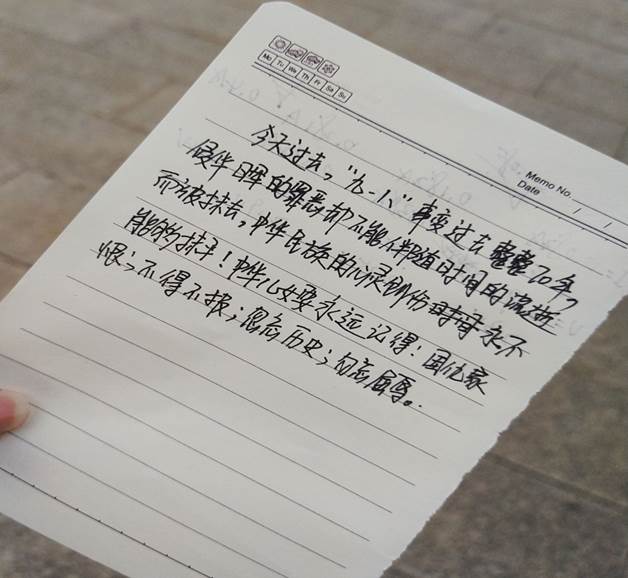 Mo Tu We Th Fr Sa Su
Memo No.
Date / /
今天过去，"九一八"事变过去整整70年，
侵华日军的罪恶却不能伴随时间的流逝
而被抹去，中华民族的心灵创伤永不
能够抹平！中华儿女要永远记得：国仇家
恨；不得不报；忽忘历史；勿忘屈辱。